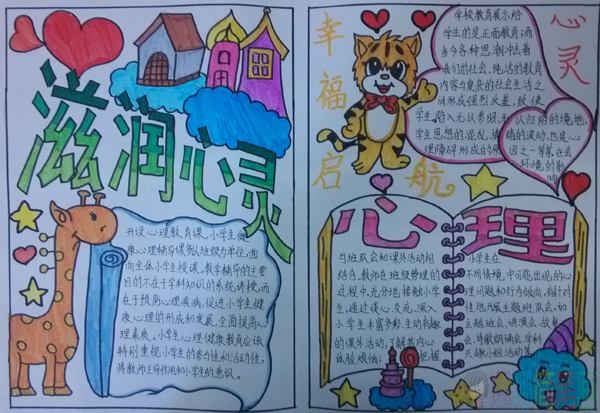 滋润心灵
开设心理教育课。小学生健
康心理辅导课以班级为单位,面
向全体小学生授课,教学辅导的主要
目的不在于学科知识的系统讲授,而
在于预防心理疾病,促进小学生健
康心理的形成和发展,全面提高心
理素质。小学生心理健康教育应该
特别重视小学生的参与性和活动性,
将教师主导作用和小学生的意识。
幸福启航
心灵
学校教育展示给
学生的是正面教育,而
当今各种思潮冲击着
我们的社会,纯洁的教育
内容与复杂的社会生活之
间形成强烈反差,致使
学生陷入无从参照,无以归附的境地,
学生思想的混乱,情绪的波动,也是心
理障碍形成的原因之一等等。社会
环境的影响
心理
与班队会和课外活动相
结合。教师在班级管理的
过程中,充分地接触小学
生,通过谈心、交流,深入
小学生丰富多彩、生动有趣
的课外活动,了解其内心
体验、烦恼, 把握
小学生在
不同情境,中可能出现的心
理问题和行为倾向,有针对
性地开展主题班队会。如
主题班会、讲演会、故事
会、诗歌朗诵会、学科
兴趣小组活动等